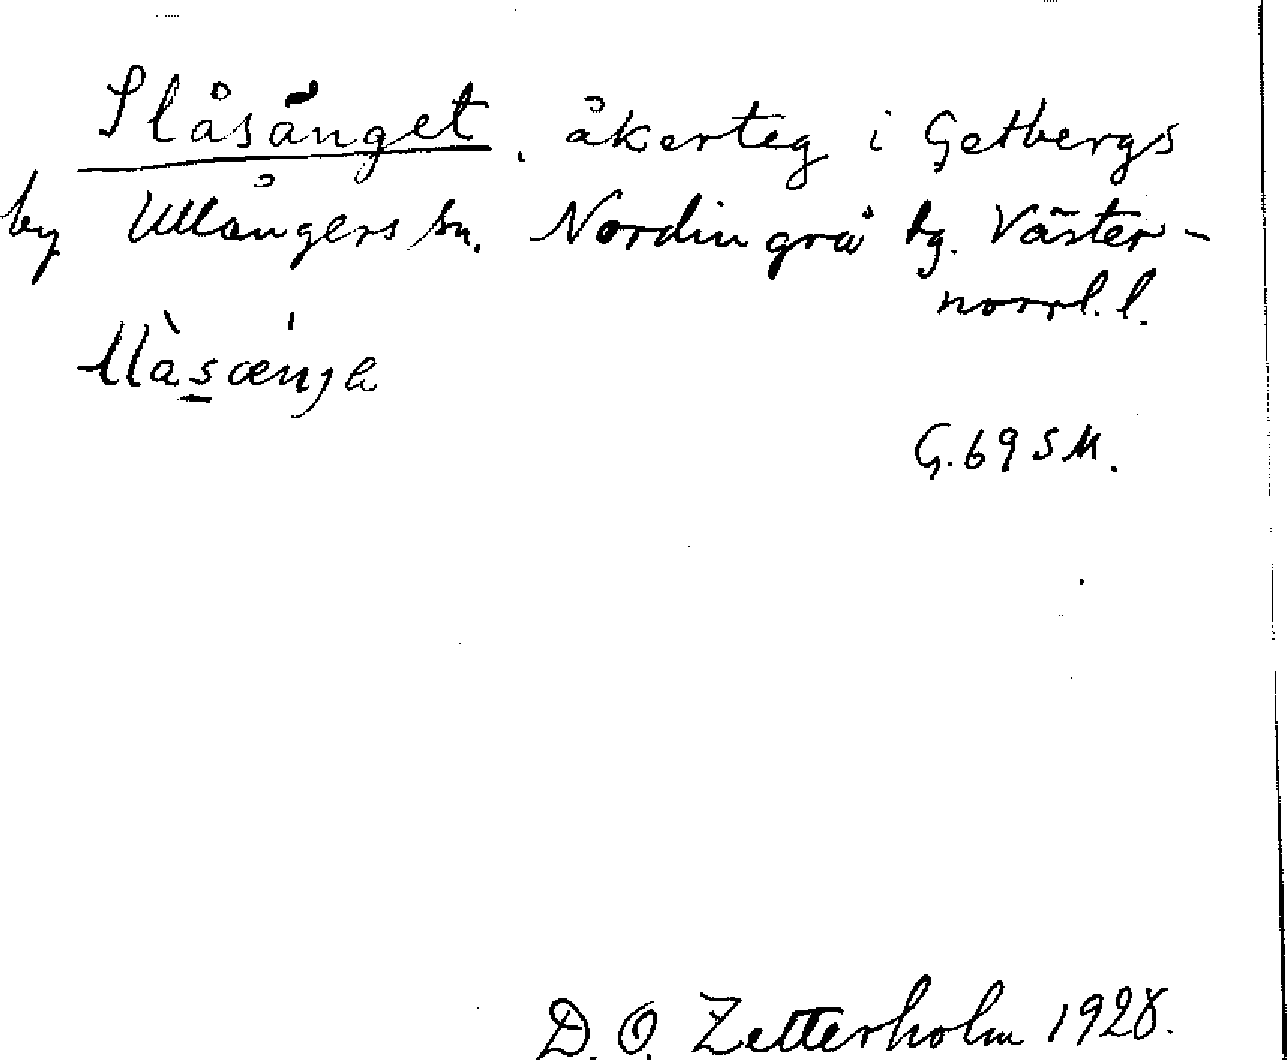 Slåsänget. åkerteg i Getbergs
by Ullångers sn. Nordingrå hg. Väster-
norrl.l.
G. 69 SM.
D. O. Zetterholm 1928.